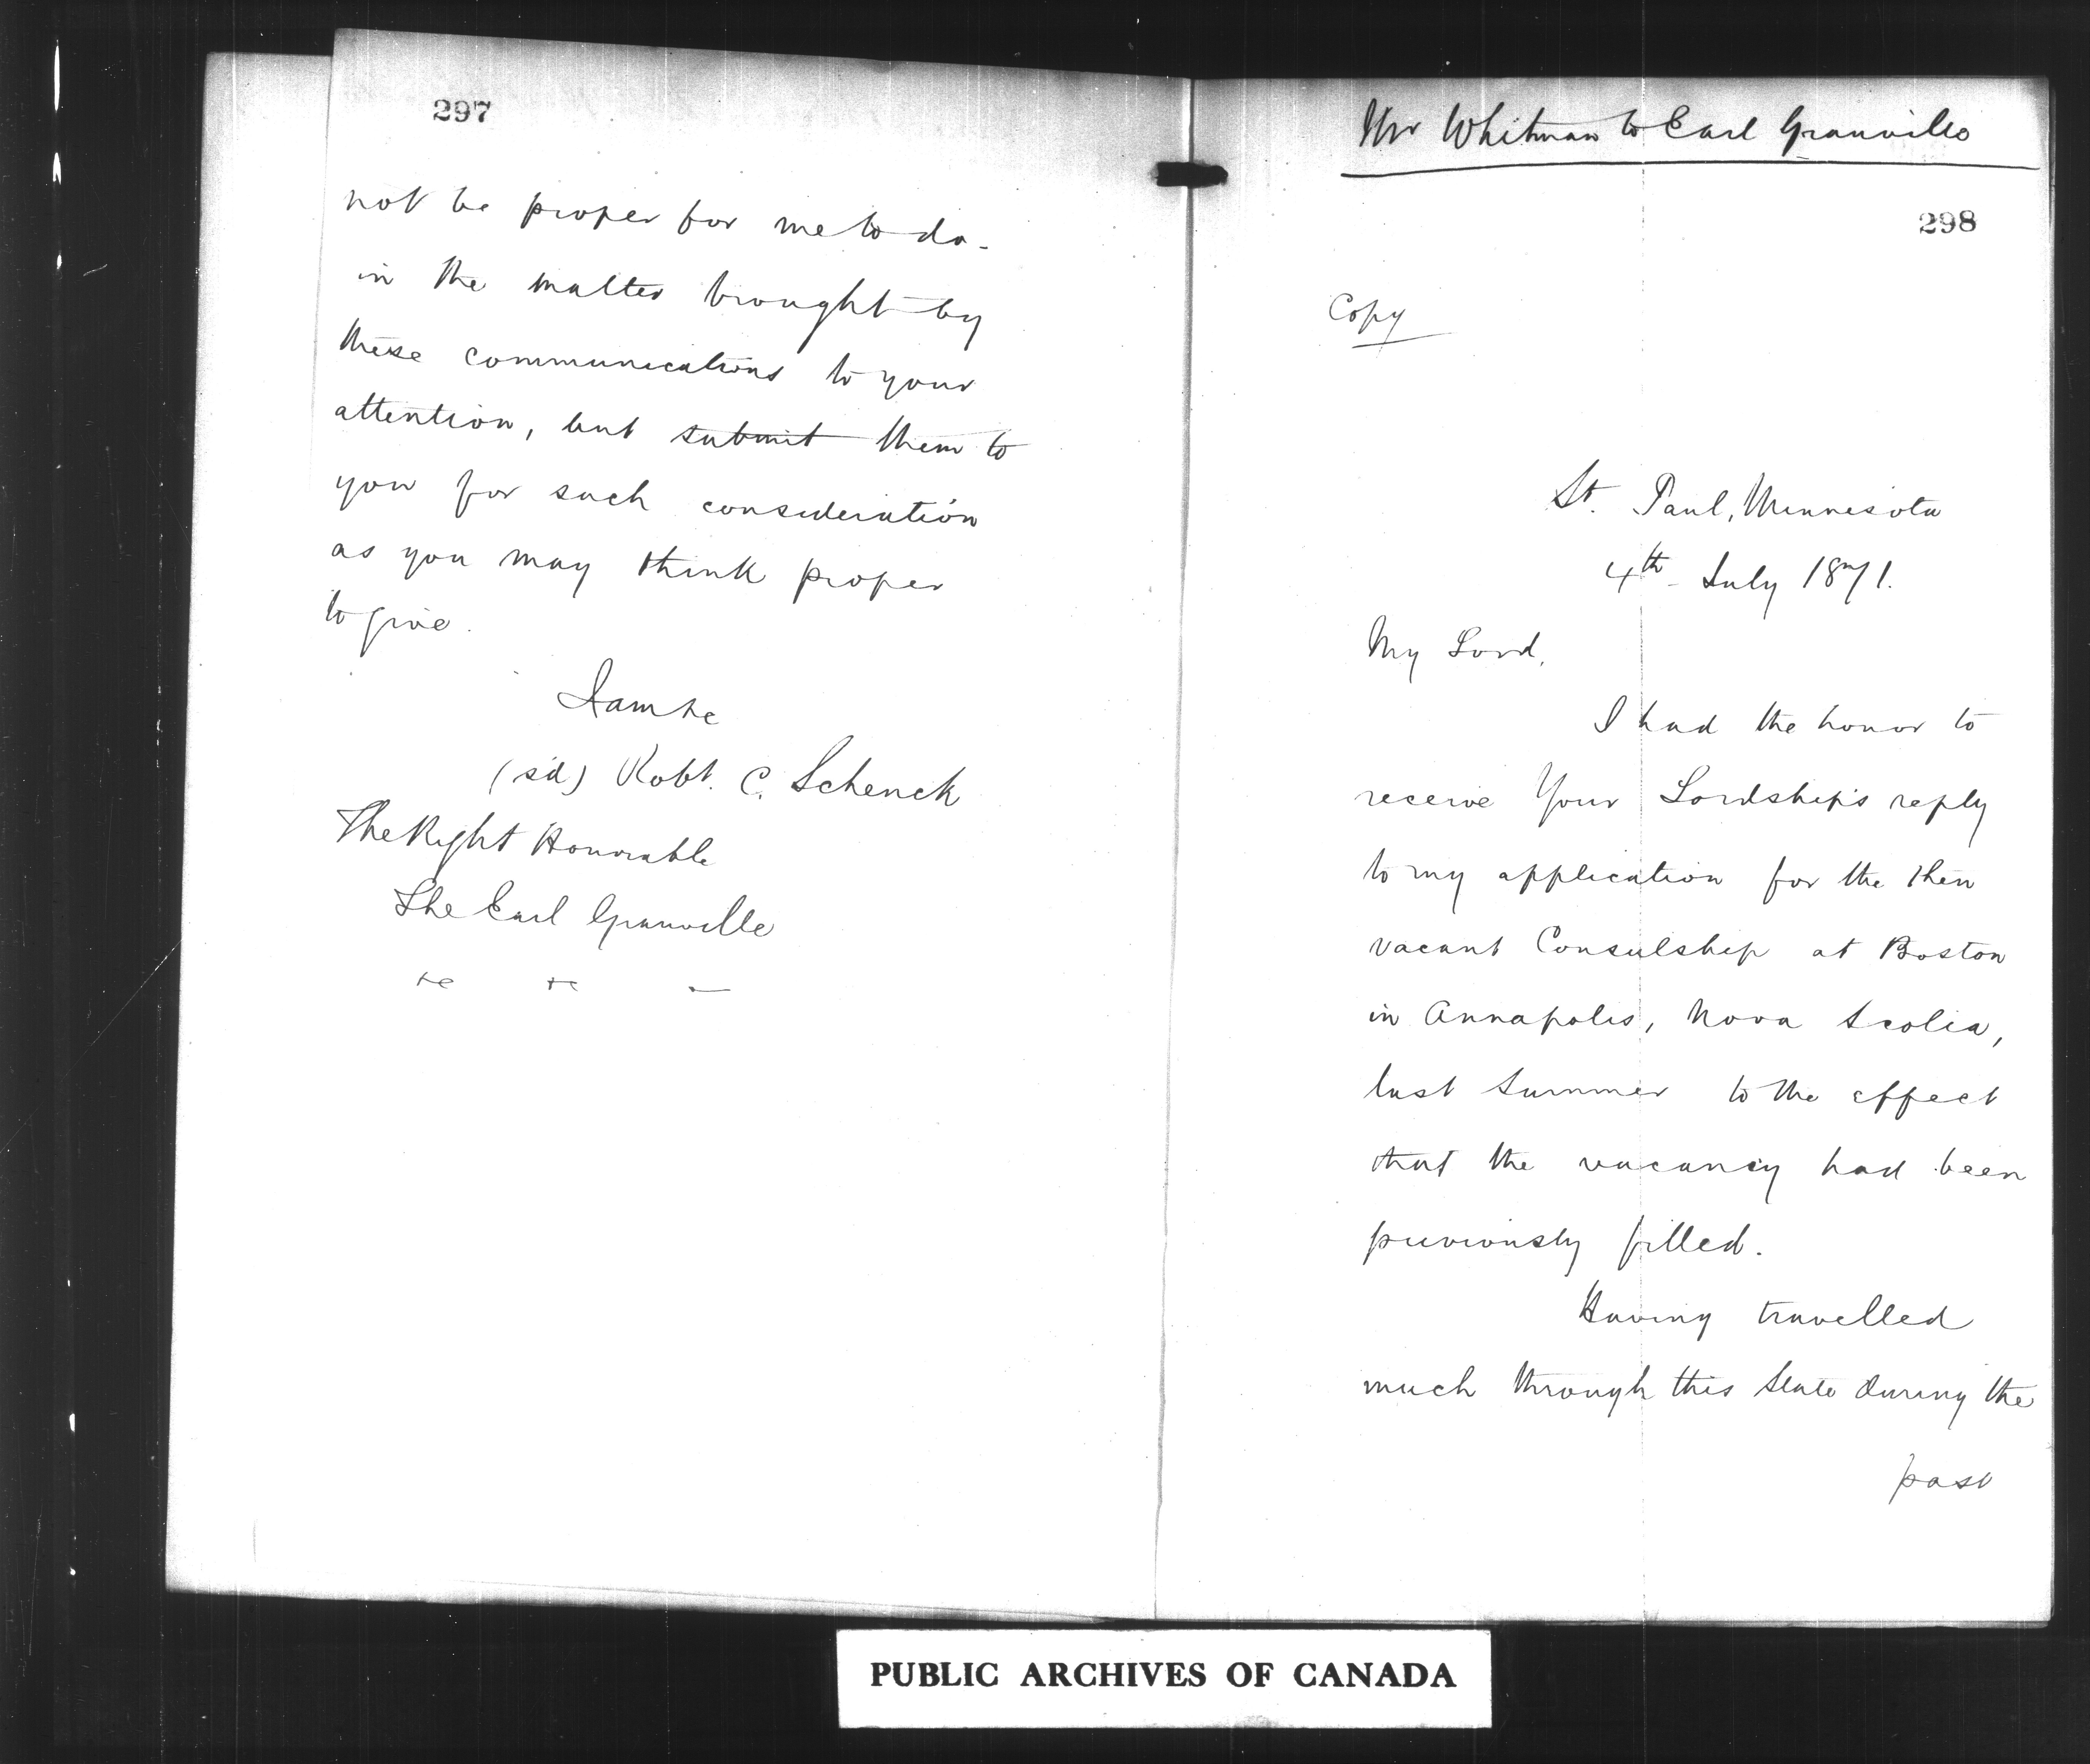 297
not be proper for me to do -
in the matter brought by
these communications to your
attention, but submit them to
you for such consideration
as you may think proper
to give.
I am &c
(sd) Robt. C. Schenck
The Right Honorable
The Earl Granville
&c &c —
Mr Whitman to Earl Granville
298
Copy
St. Paul, Minnesota
4th July 1871.
My Lord,
I had the honor to
receive Your Lordship's reply
to my application for the then
vacant Consulship at Boston
in Annapolis, Nova Scotia,
last Summer to the effect
that the vacancy had been
previously filled.
Having travelled
much through this State during the
past
PUBLIC ARCHIVES OF CANADA